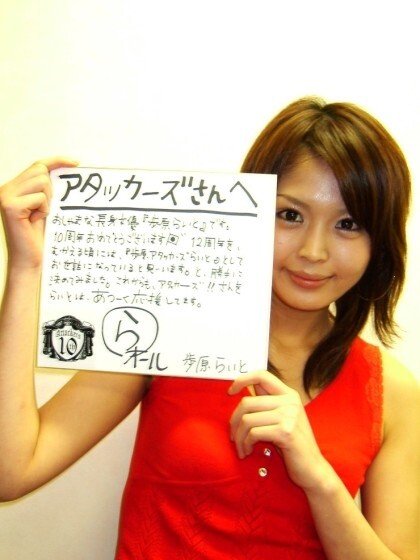 アタッカーズさんへ
おしゃまな長身女優『歩原らいと』です。
10周年おめでとうございます 12周年を、
むかえる頃には、『歩原アタッカーズらいと』として
お世話になっていると思います。と、勝手に
決めてみました。これからも、アタッカーズ!!さんを
らいとは、あつーく応援してます。
Attackers
10th
ら
オール
歩原らいと